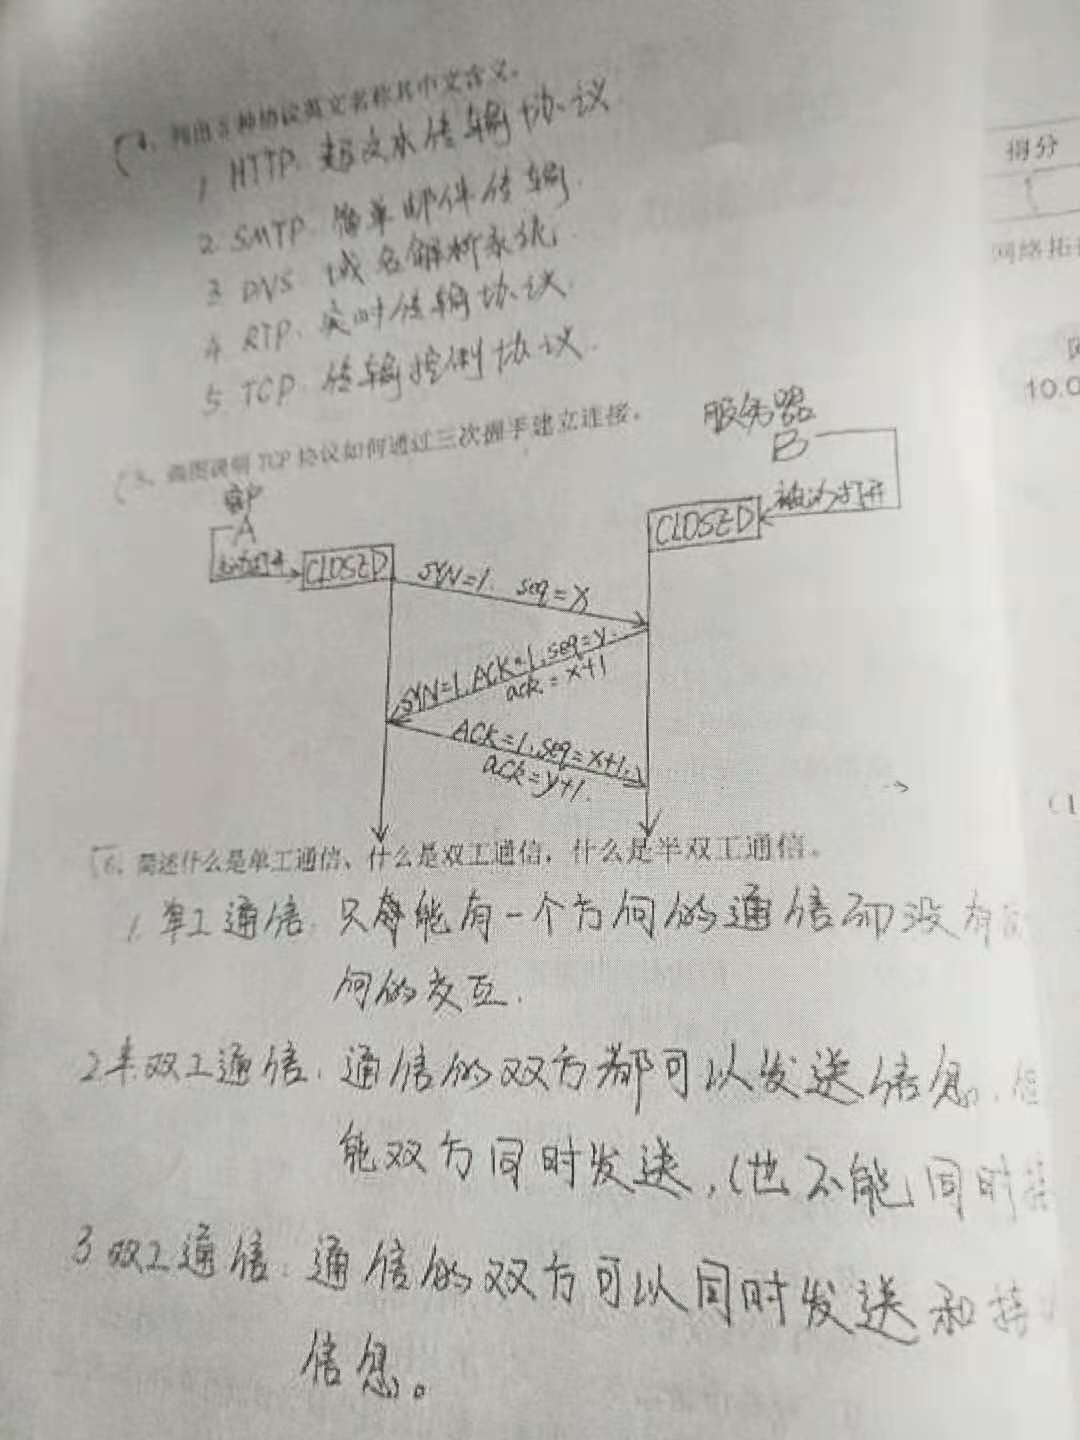 4、列出5种协议英文名称其中文含义。
1 HTTP. 超文本传输协议
2. SMTP. 简单邮件传输.
3. DNS. 域名解析系统.
4. RTP. 实时传输协议.
5. TCP. 传输控制协议.
5、画图说明 TCP 协议如何通过三次握手建立连接。
服务器
B
被动打开
CLOSED
客户
A
主动打开
CLOSED
SYN=1. seq=x
SYN=1,ACK=1,seq=y.
ack=x+1
ACK=1,seq=x+1,
ack=y+1.
6、简述什么是单工通信、什么是双工通信，什么是半双工通信。
1. 单工通信. 只能有一个方向的通信而没有
向的交互.
2.半双工通信. 通信的双方都可以发送信息,
能双方同时发送, (也不能同时
3 双工通信. 通信的双方可以同时发送和
信息。
得分
网络拓
10.0
(1